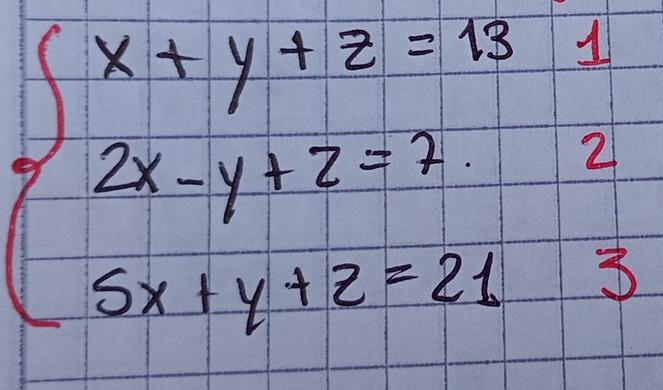 x + y + z = 13 1
2x - y + z = 7. 2
5x + y + z = 21 3